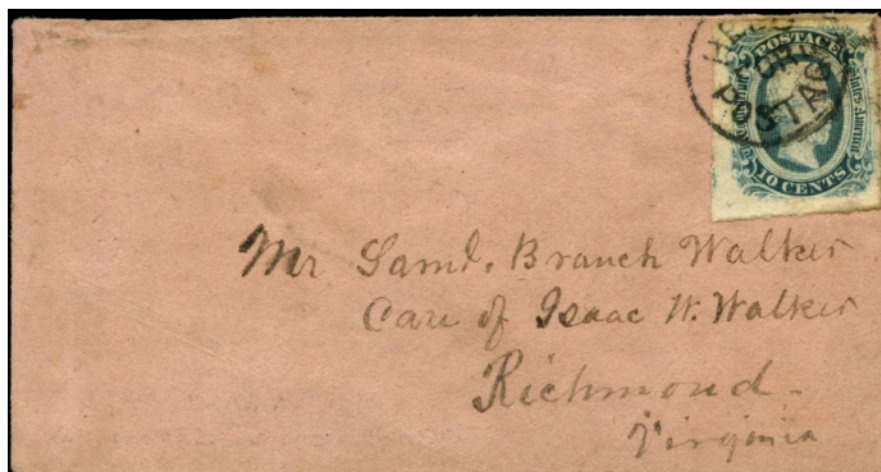 POSTAGE
States America
10 CENTS
Mr Saml. Branch Walker
Care of Isaac W. Walker
Richmond
Virginia